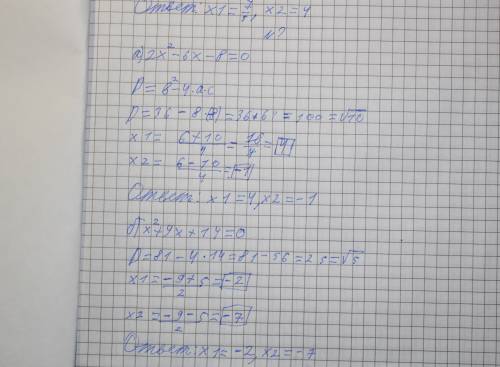 Ответ: x1 = 7/51, x2 = 4
№7
а) 2x² - 6x - 8 = 0
D = в² - 4·ac
D = 36 - 8·(-8) = 36 + 64 = 100 = √10
x1 = (6+10)/4 = 16/4 = 4
x2 = (6-10)/4 = -1
Ответ: x1 = 4, x2 = -1
б) x² + 9x + 14 = 0
D = 81 - 4·14 = 81 - 56 = 25 = √5
x1 = (-9+5)/2 = -2
x2 = (-9-5)/2 = -7
Ответ: x1 = -2, x2 = -7